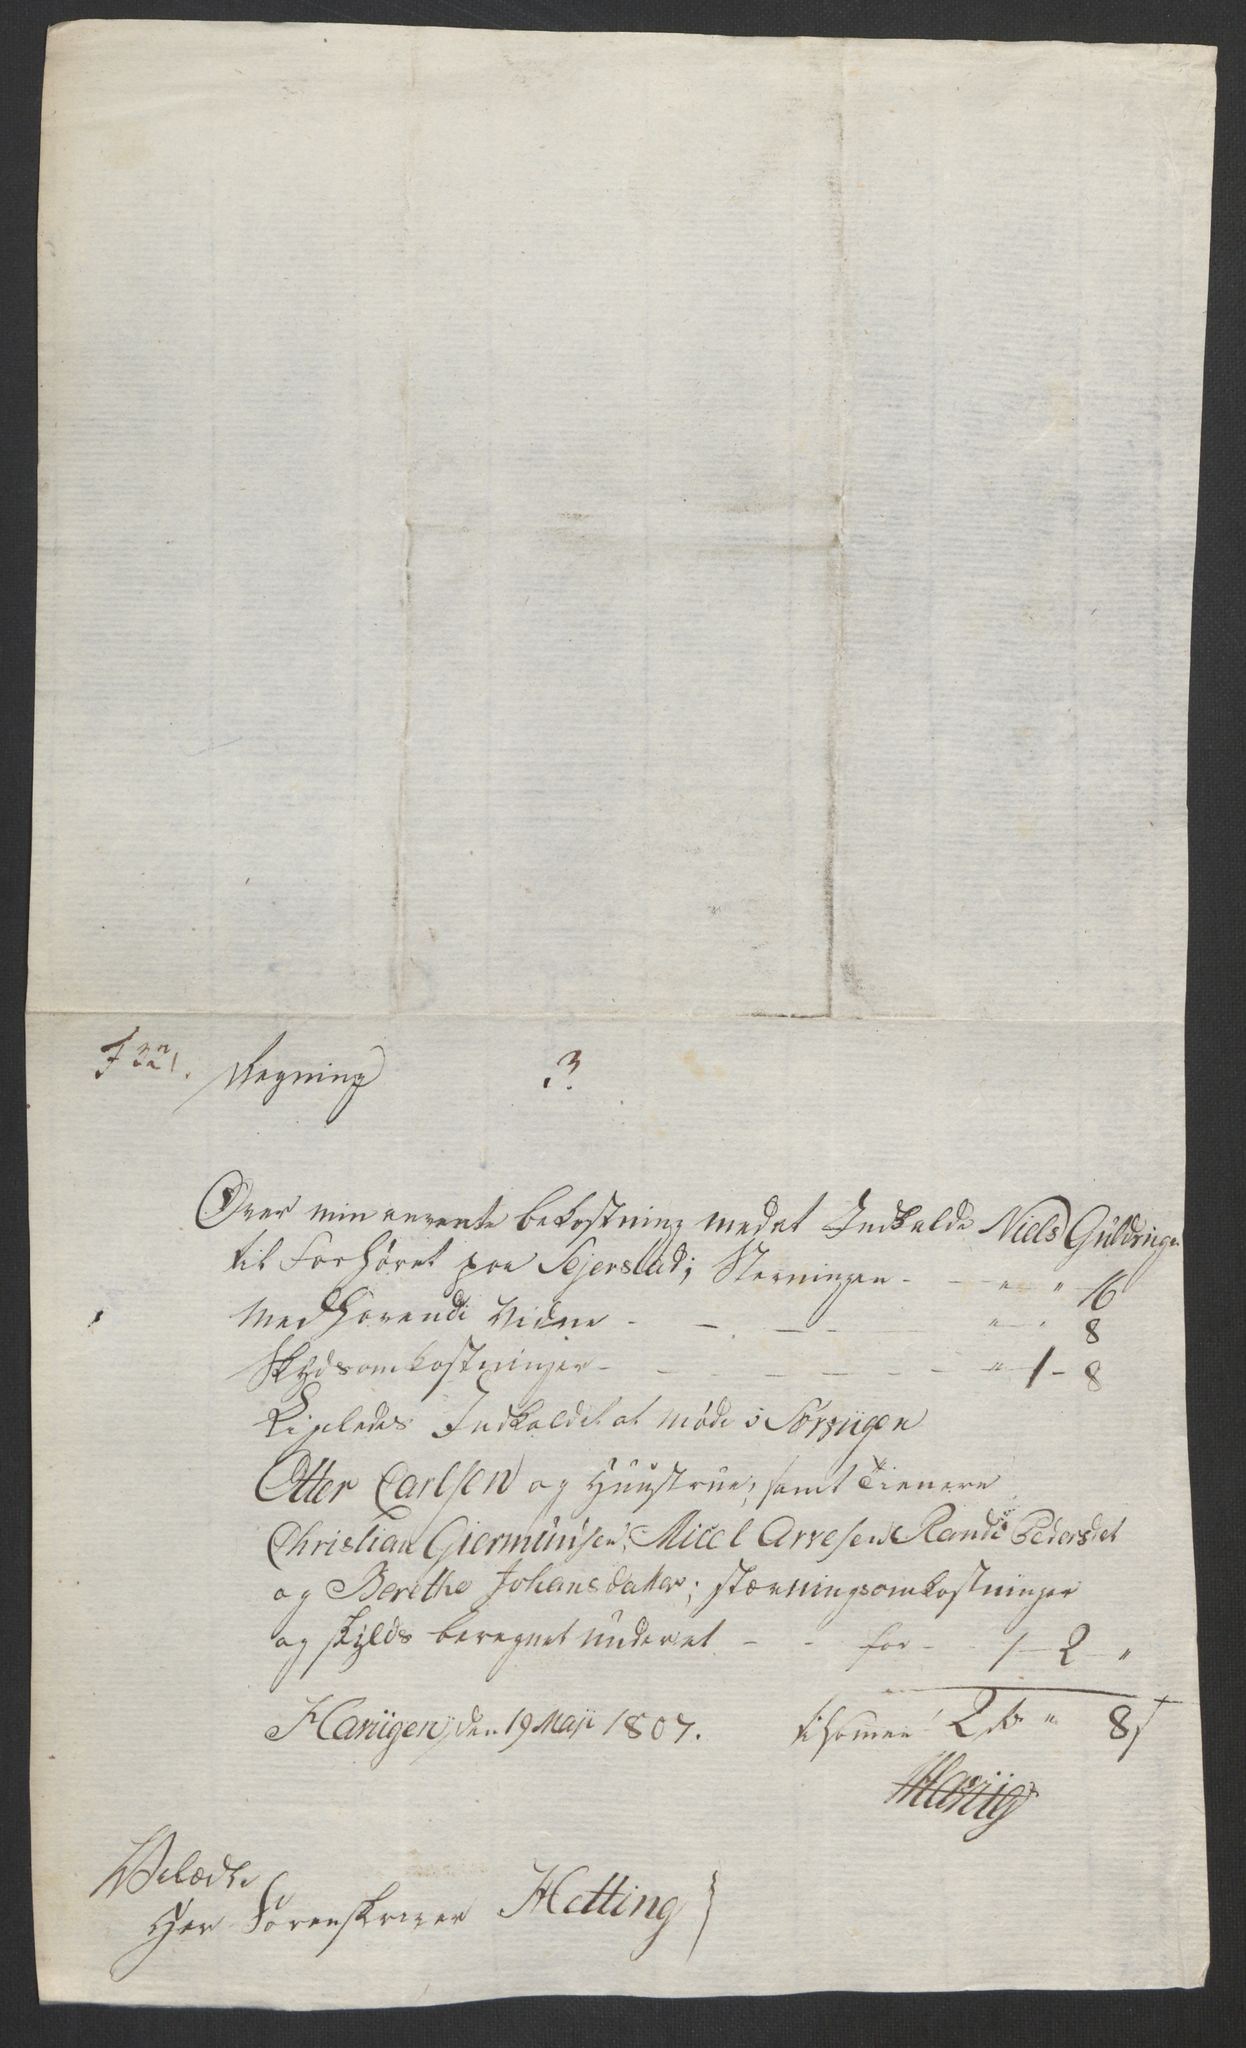 Regning 3.
Over min anvente bekostning medat Indkalde Niels Guldringen
til Forhøret paa Sejerstad; Stevningen - - " " 16
Medhavendi Vidne - - - - " " 8
Skydsomkostninger - - - - " 1 - 8
Ligeledes Indkaldet at møde i Sørvigen
Otter Carlsen og Huustrue, samt Tienere
Christian Giermunsen, Micel Arvesen, Randi Pedersdat
og Berethe Johansdatter; stævningsomkostninger
og skyds beregnet underet - - for - 1 - 2 "
Haruigen, den 19 Maji 1807. tilsamen 2 rd " 8 s
Velædle
Her Sorenskriver Hetting